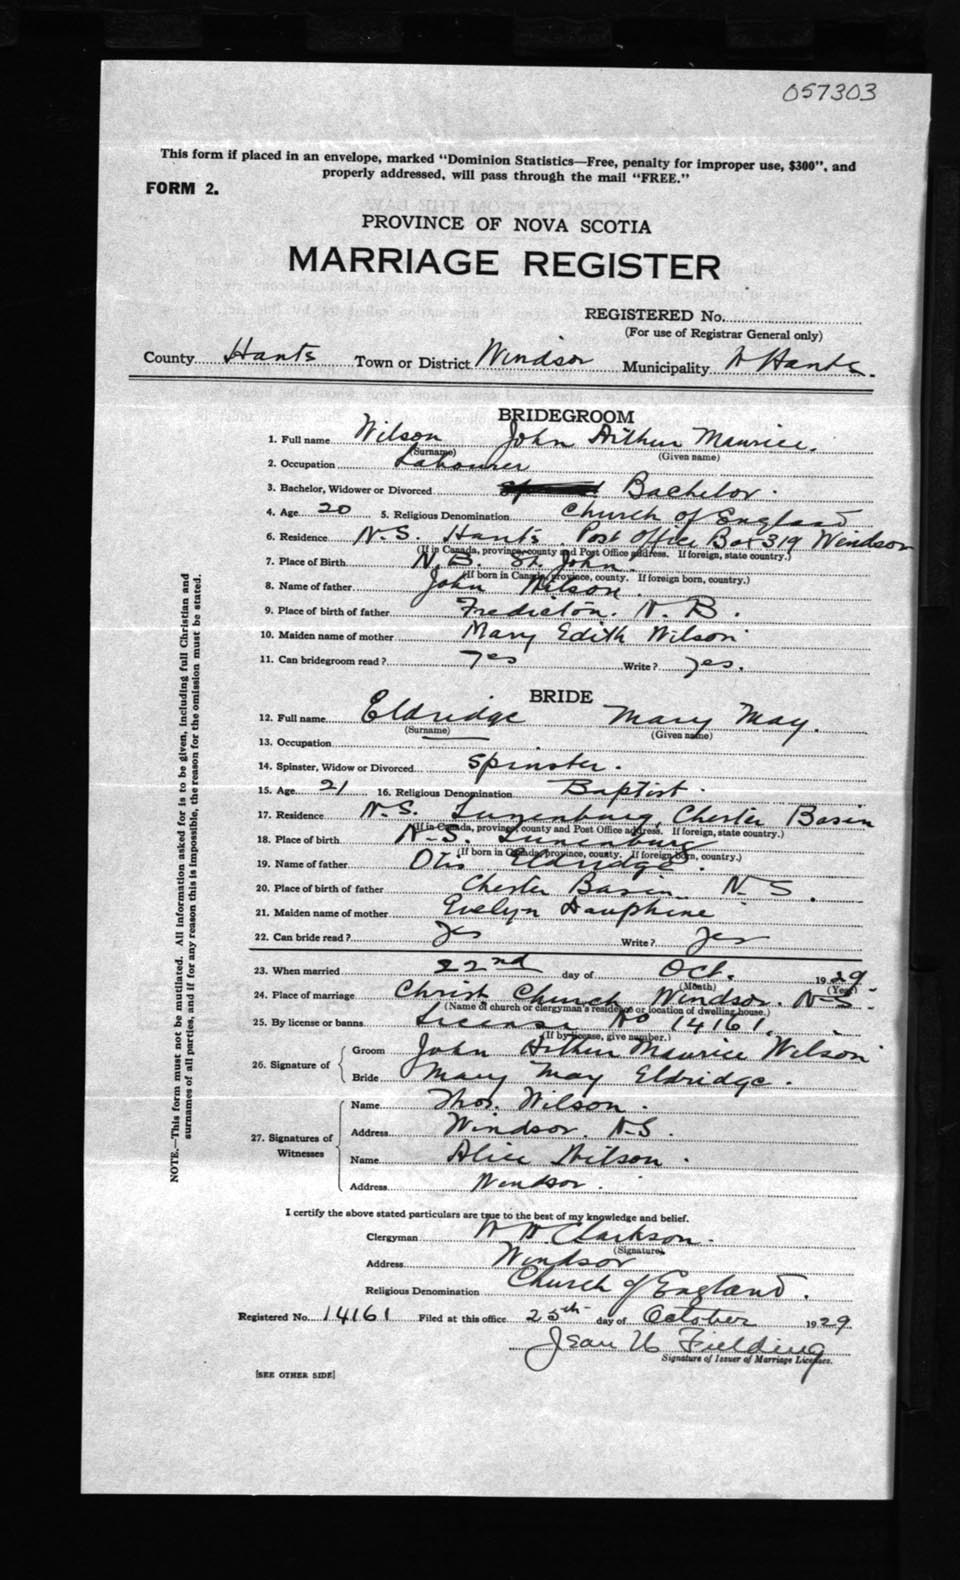 057303
This form if placed in an envelope, marked "Dominion Statistics—Free, penalty for improper use, $300", and
properly addressed, will pass through the mail "FREE."
FORM 2.
PROVINCE OF NOVA SCOTIA
MARRIAGE REGISTER
REGISTERED No.
(For use of Registrar General only)
County Hants Town or District Windsor Municipality W Hants.
BRIDEGROOM
1. Full name Wilson John Arthur Maurice.
(Surname) (Given name)
2. Occupation Labourer
3. Bachelor, Widower or Divorced Bachelor.
4. Age 20 5. Religious Denomination Church of England
6. Residence N.S. Hants. Post Office Box 319 Windsor
(If in Canada, province, county and Post Office address. If foreign, state country.)
7. Place of Birth N.B. St John.
(If born in Canada, province, county. If foreign born, country.)
8. Name of father John Wilson.
9. Place of birth of father Fredicton. N.B.
10. Maiden name of mother Mary Edith Wilson
11. Can bridegroom read? Yes Write? yes.
BRIDE
12. Full name Eldridge Mary May.
(Surname) (Given name)
13. Occupation
14. Spinster, Widow or Divorced Spinster.
15. Age 21 16. Religious Denomination Baptist.
17. Residence N.S. Lunenburg, Chester Basin
(If in Canada, province, county and Post Office address. If foreign, state country.)
18. Place of birth N.S. Lunenburg
(If born in Canada, province, county. If foreign born, country.)
19. Name of father Otis Eldridge.
20. Place of birth of father Chester Basin N-S.
21. Maiden name of mother Evelyn Dauphine
22. Can bride read? Yes Write? Yes
23. When married 22nd day of Oct. 1929.
(Month) (Year)
24. Place of marriage Christ Church Windsor. N-S.
(Name of church or clergyman's residence or location of dwelling house.)
25. By license or banns License No 14161.
(If by license, give number.)
26. Signature of
Groom John Arthur Maurice Wilson
Bride Mary May Eldridge.
27. Signatures of Witnesses
Name Thos. Wilson.
Address Windsor. N.S.
Name Alice Wilson.
Address Windsor.
I certify the above stated particulars are true to the best of my knowledge and belief.
Clergyman Clarkson.
(Signature)
Address Windsor
Religious Denomination Church of England.
Registered No. 14161 Filed at this office 25th day of October 1929
Jean Fielding
Signature of Issuer of Marriage Licenses.
[SEE OTHER SIDE]
NOTE.—This form must not be mutilated. All information asked for is to be given, including full Christian and
surnames of all parties, and if for any reason this is impossible, the reason for the omission must be stated.